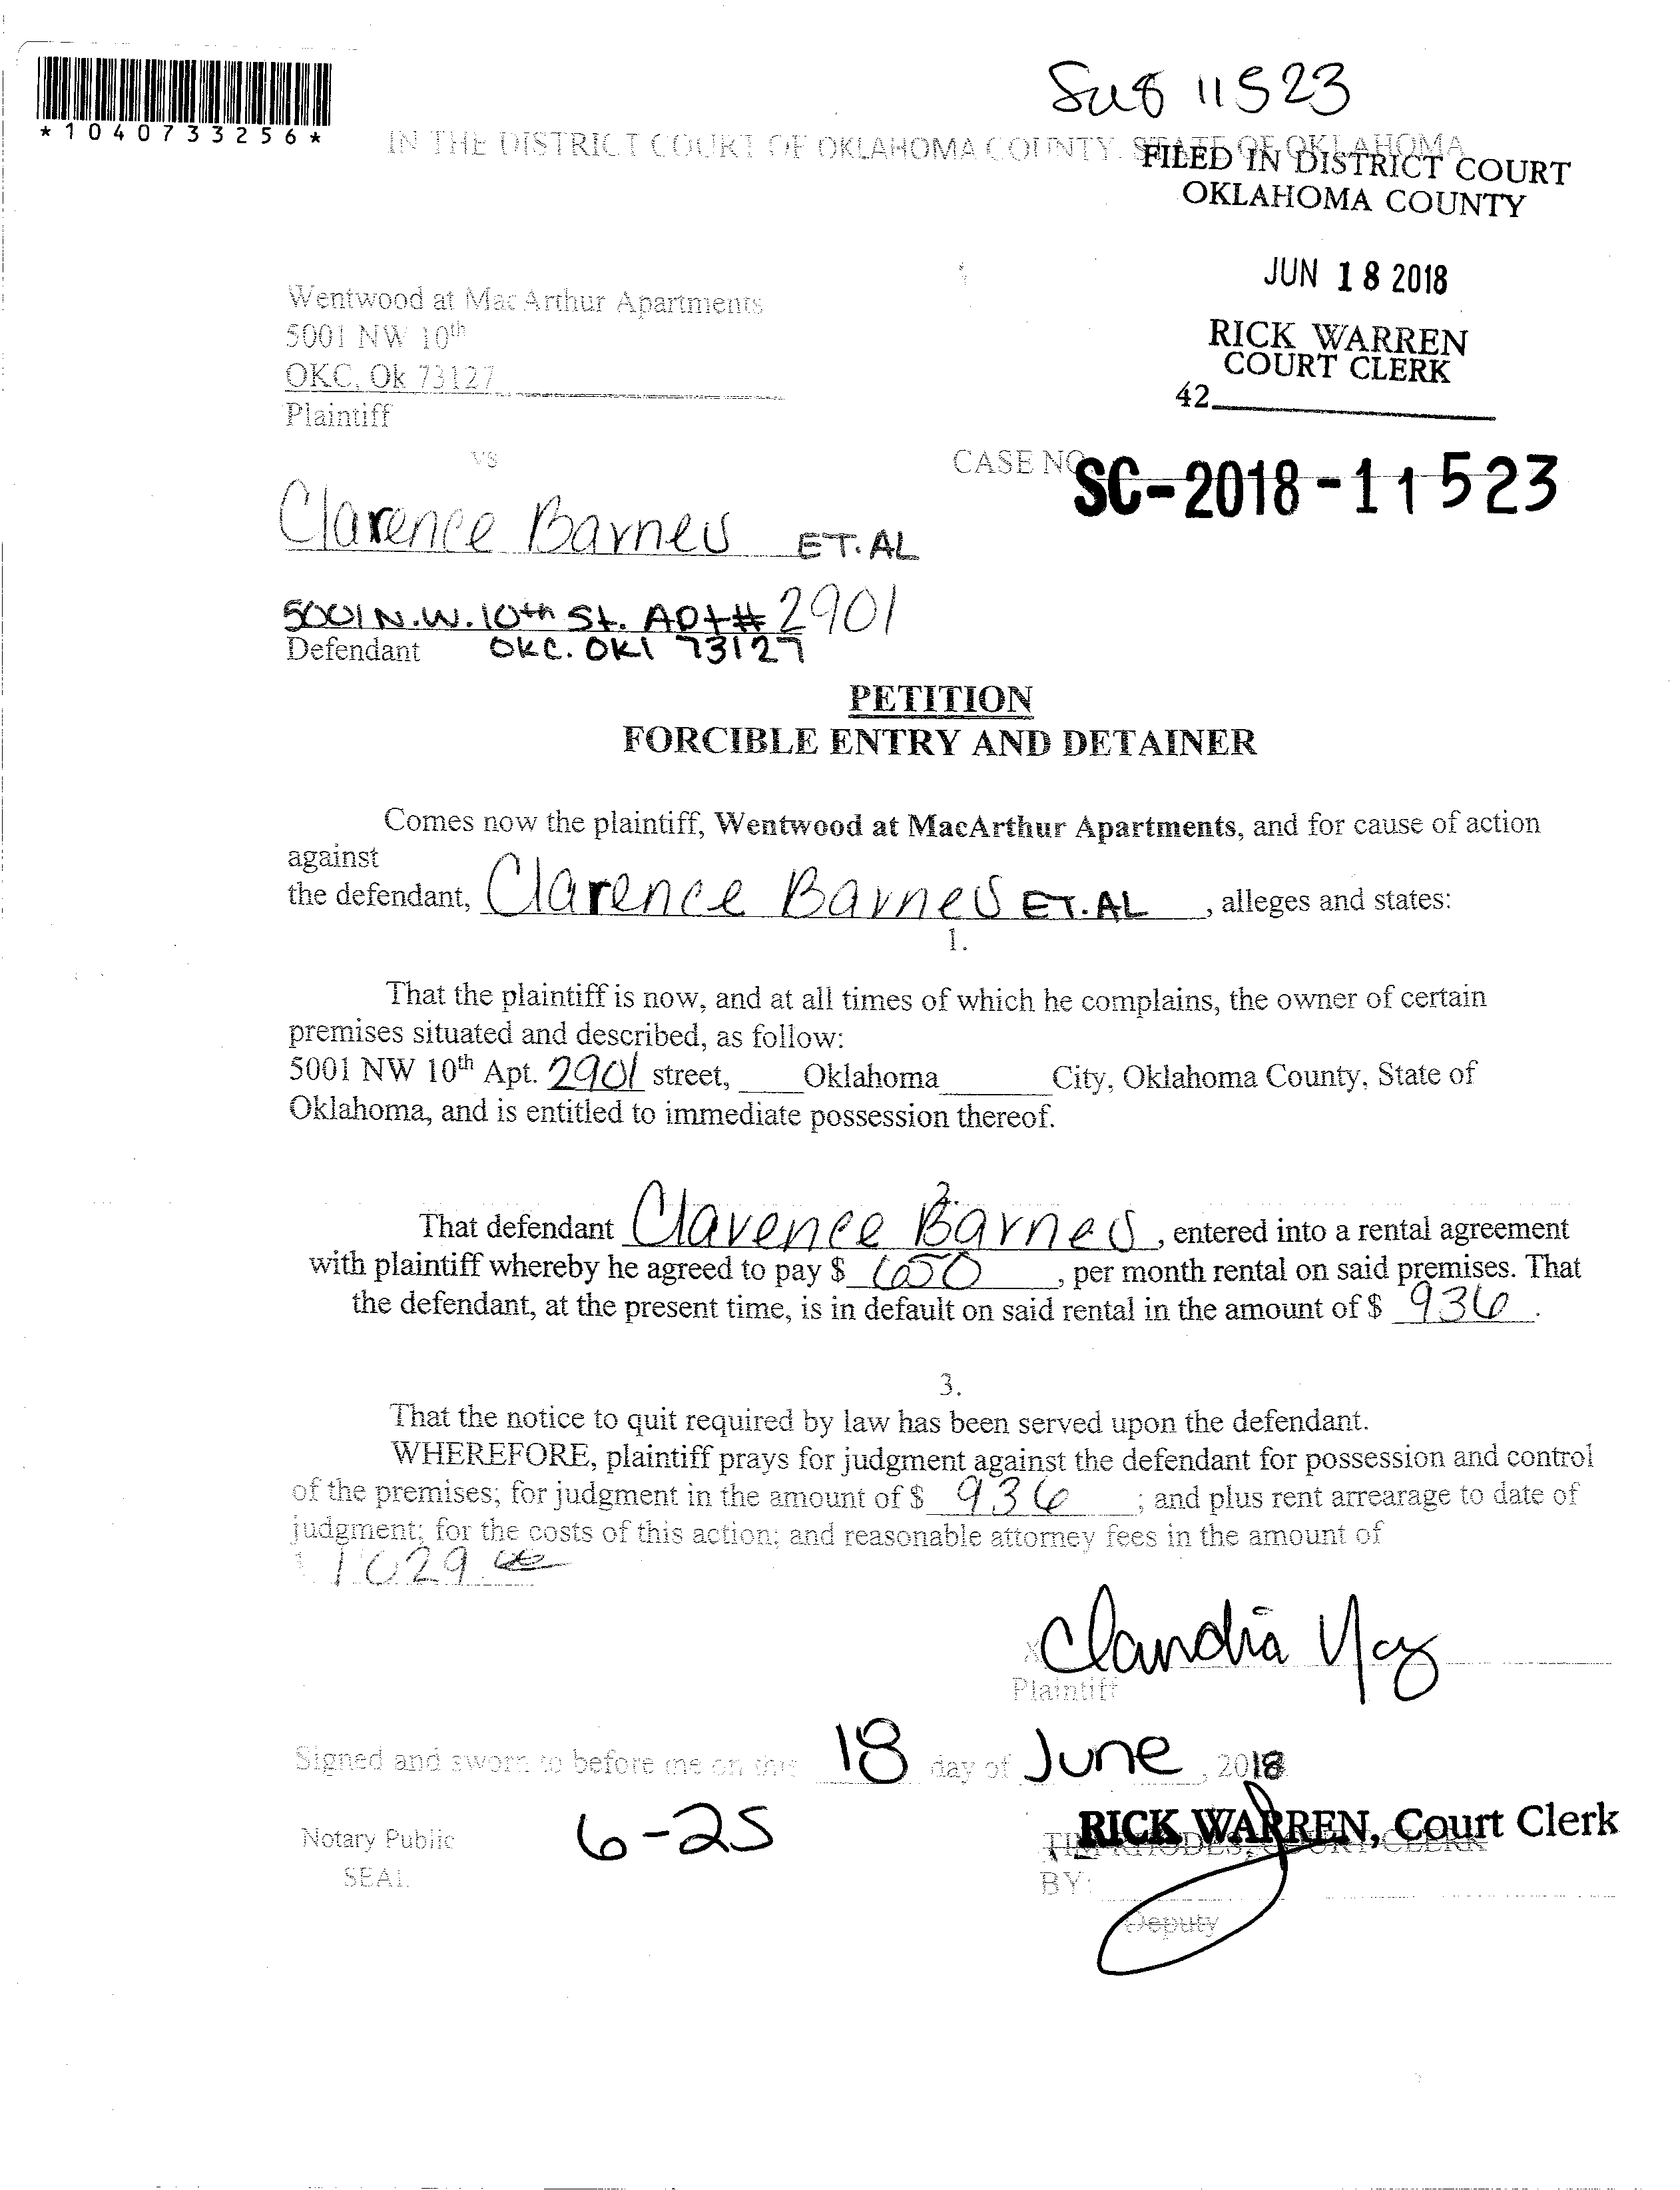 Sus 11523
*1040733256*
IN THE DISTRICT COURT OF OKLAHOMA COUNTY. STATE OF OKLAHOMA
FILED IN DISTRICT COURT
OKLAHOMA COUNTY
JUN 18 2018
RICK WARREN
COURT CLERK
42
Wentwood at MacArthur Apartments
5001 NW 10th
OKC, Ok 73127
Plaintiff
vs
CASE NO
SC-2018-11523
Clarence Barnes ET.AL
5001 N.W. 10th St. APt# 2901
Defendant OKC. OKl 73127
PETITION
FORCIBLE ENTRY AND DETAINER
Comes now the plaintiff, Wentwood at MacArthur Apartments, and for cause of action
against
the defendant, Clarence Barnes ET.AL , alleges and states:
1.
That the plaintiff is now, and at all times of which he complains, the owner of certain
premises situated and described, as follow:
5001 NW 10th Apt. 2901 street, Oklahoma City, Oklahoma County, State of
Oklahoma, and is entitled to immediate possession thereof.
2.
That defendant Clarence Barnes , entered into a rental agreement
with plaintiff whereby he agreed to pay $ 650 , per month rental on said premises. That
the defendant, at the present time, is in default on said rental in the amount of $ 936 .
3.
That the notice to quit required by law has been served upon the defendant.
WHEREFORE, plaintiff prays for judgment against the defendant for possession and control
of the premises; for judgment in the amount of $ 936 ; and plus rent arrearage to date of
judgment; for the costs of this action; and reasonable attorney fees in the amount of
$ 1029.00
x Claudia
Plaintiff
Signed and sworn to before me on this 18 day of June , 2018
Notary Public
6-25
RICK WARREN, Court Clerk
TIM RHODES, COURT CLERK
SEAL
BY:
Deputy